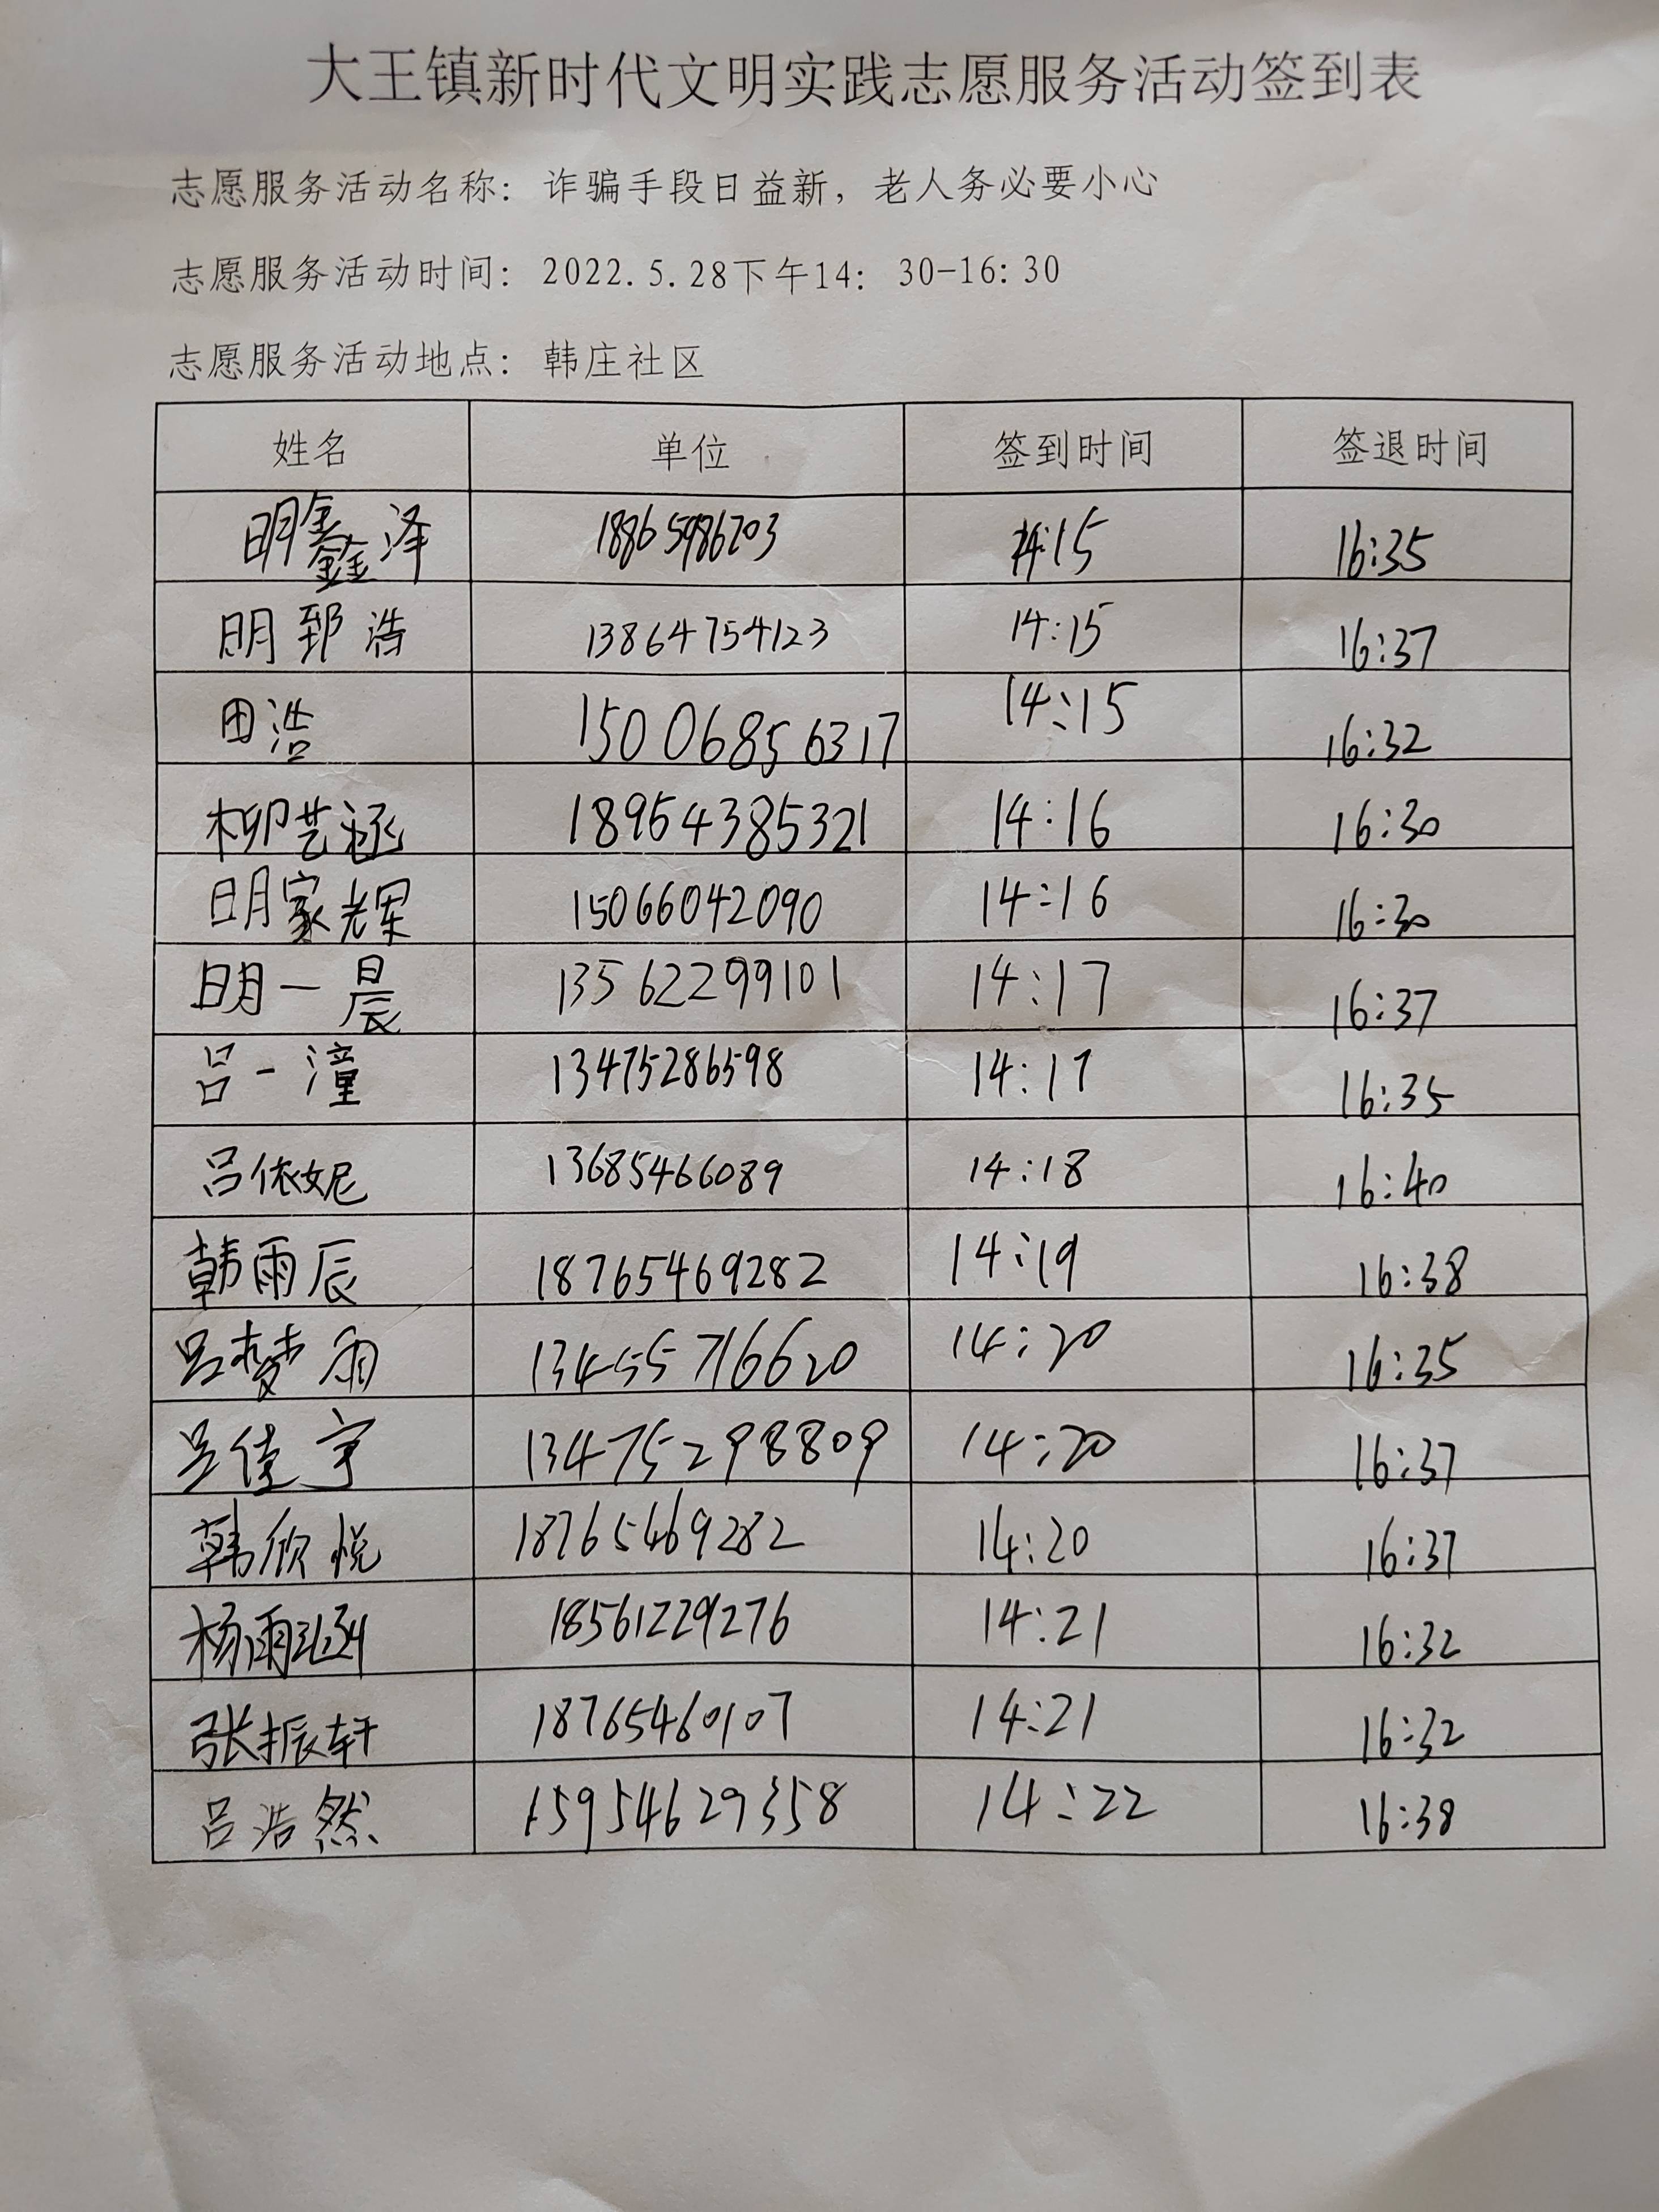 大王镇新时代文明实践志愿服务活动签到表
志愿服务活动名称：诈骗手段日益新，老人务必要小心
志愿服务活动时间：2022.5.28下午14：30-16:30
志愿服务活动地点：韩庄社区
姓名 单位 签到时间 签退时间
明鑫泽 18865986203 14:15 16:35
明郅浩 13864754123 14:15 16:37
田浩 15006856317 14:15 16:32
柳艺涵 18954385321 14:16 16:30
明家辉 15066042090 14:16 16:30
明一晨 13562299101 14:17 16:37
吕一潼 13475286598 14:17 16:35
吕依妮 13685466089 14:18 16:40
韩雨辰 18765469282 14:19 16:38
吕梦雨 13455716620 14:20 16:35
吕佳宇 13475298809 14:20 16:37
韩欣悦 18765469282 14:20 16:37
杨雨 18561229276 14:21 16:32
张振轩 18765460107 14:21 16:32
吕浩然 15954629358 14:22 16:38